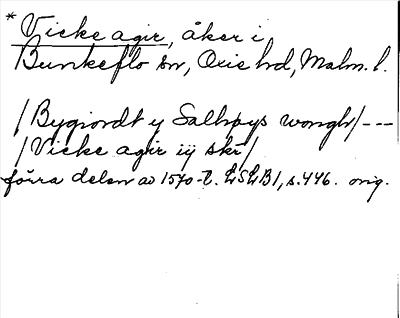 * Vicke agir, åker i
Bunkeflo sn, Oxie hd, Malm. l.
/Bygiordt y Salhøys wongh/---
/Vicke agir iij skr/
förra delen av 1570-t. LSLB1, s.446. orig.